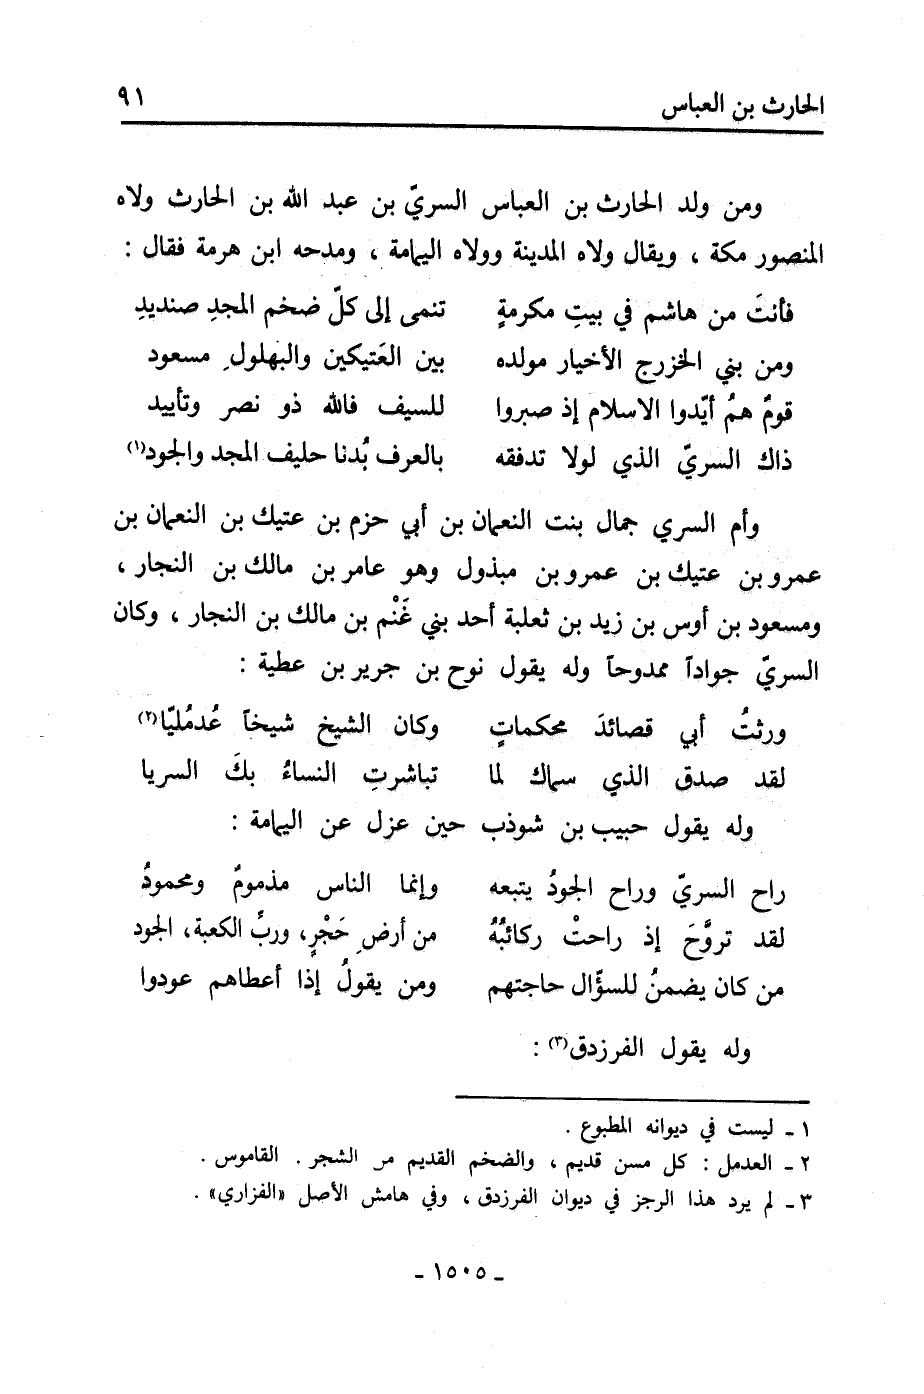 الحارث بن العباس ٩١
ومن ولد الحارث بن العباس السريّ بن عبد الله بن الحارث ولاه
المنصور مكة ، ويقال ولاه المدينة وولاه اليمامة ، ومدحه ابن هرمة فقال :
فأنتَ من هاشم في بيتِ مكرمةٍ تنمى إلى كلّ ضخم المجدِ صنديدِ
ومن بني الخزرج الأخيار مولده بين العَتيكين والبهلولِ مسعود
قومٌ همُ أيّدوا الاسلام إذ صبروا للسيف فالله ذو نصر وتأييد
ذاك السريّ الذي لولا تدفقه بالعرف بُدنا حليف المجد والجود(١)
وأم السري جمال بنت النعمان بن أبي حزم بن عتيك بن النعمان بن
عمرو بن عتيك بن عمرو بن مبذول وهو عامر بن مالك بن النجار ،
ومسعود بن أوس بن زيد بن ثعلبة أحد بني غَنْم بن مالك بن النجار ، وكان
السريّ جواداً ممدوحاً وله يقول نوح بن جرير بن عطية :
ورثتُ أبي قصائدَ محكماتٍ وكان الشيخ شيخاً عُدمُليّا(٢)
لقد صدق الذي سماك لما تباشرتِ النساءُ بكَ السريا
وله يقول حبيب بن شوذب حين عزل عن اليمامة :
راح السريّ وراح الجودُ يتبعه وإنما الناس مذمومٌ ومحمودُ
لقد تروَّحَ إذ راحتْ ركائبُهُ من أرضِ حَجْرٍ، وربِّ الكعبة، الجود
من كان يضمنُ للسؤّال حاجتهم ومن يقولُ إذا أعطاهم عودوا
وله يقول الفرزدق(٣) :
١ - ليست في ديوانه المطبوع .
٢ - العدمل : كل مسن قديم ، والضخم القديم من الشجر . القاموس .
٣ - لم يرد هذا الرجز في ديوان الفرزدق ، وفي هامش الأصل «الفزاري» .
- ١٥٠٥ -